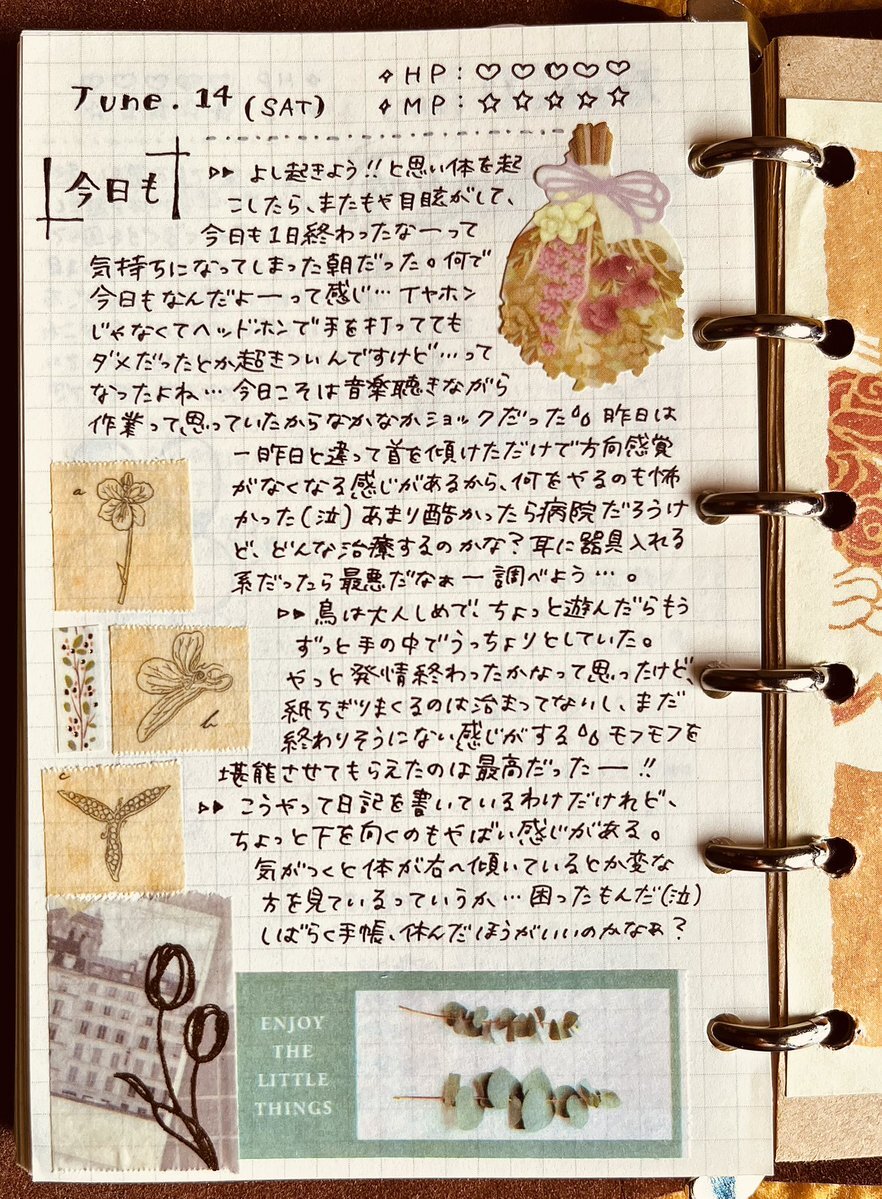 June. 14 (SAT)
✧ HP: ♡♡♡♡♡
✧ MP: ☆☆☆☆☆
今日も
▷▷ よし起きよう!!と思い体を起
こしたら、またもや目眩がして、
今日も1日終わったなーって
気持ちになってしまった朝だった。何で
今日もなんだよーって感じ…イヤホン
じゃなくてヘッドホンで手を打ってても
ダメだったとか超きついんですけど…って
なったよね…今日こそは音楽聴きながら
作業って思っていたからなかなかショックだった 昨日は
一昨日と違って首を傾けただけで方向感覚
がなくなる感じがあるから、何をやるのも怖
かった(泣)あまり酷かったら病院だろうけ
ど、どんな治療するのかな?耳に器具入れる
系だったら最悪だなぁー調べよう…。
▷▷ 鳥は大人しめで、ちょっと遊んだらもう
ずっと手の中でうっちょりとしていた。
やっと発情終わったかなって思ったけど、
紙ちぎりまくるのは治まってないし、まだ
終わりそうにない感じがする モフモフを
堪能させてもらえたのは最高だったー!!
▷▷ こうやって日記を書いているわけだけれど、
ちょっと下を向くのもやばい感じがある。
気がつくと体が右へ傾いているとか変な
方を見ているっていうか…困ったもんだ(泣)
しばらく手帳、休んだほうがいいのかなぁ?
a
b
c
ENJOY
THE
LITTLE
THINGS